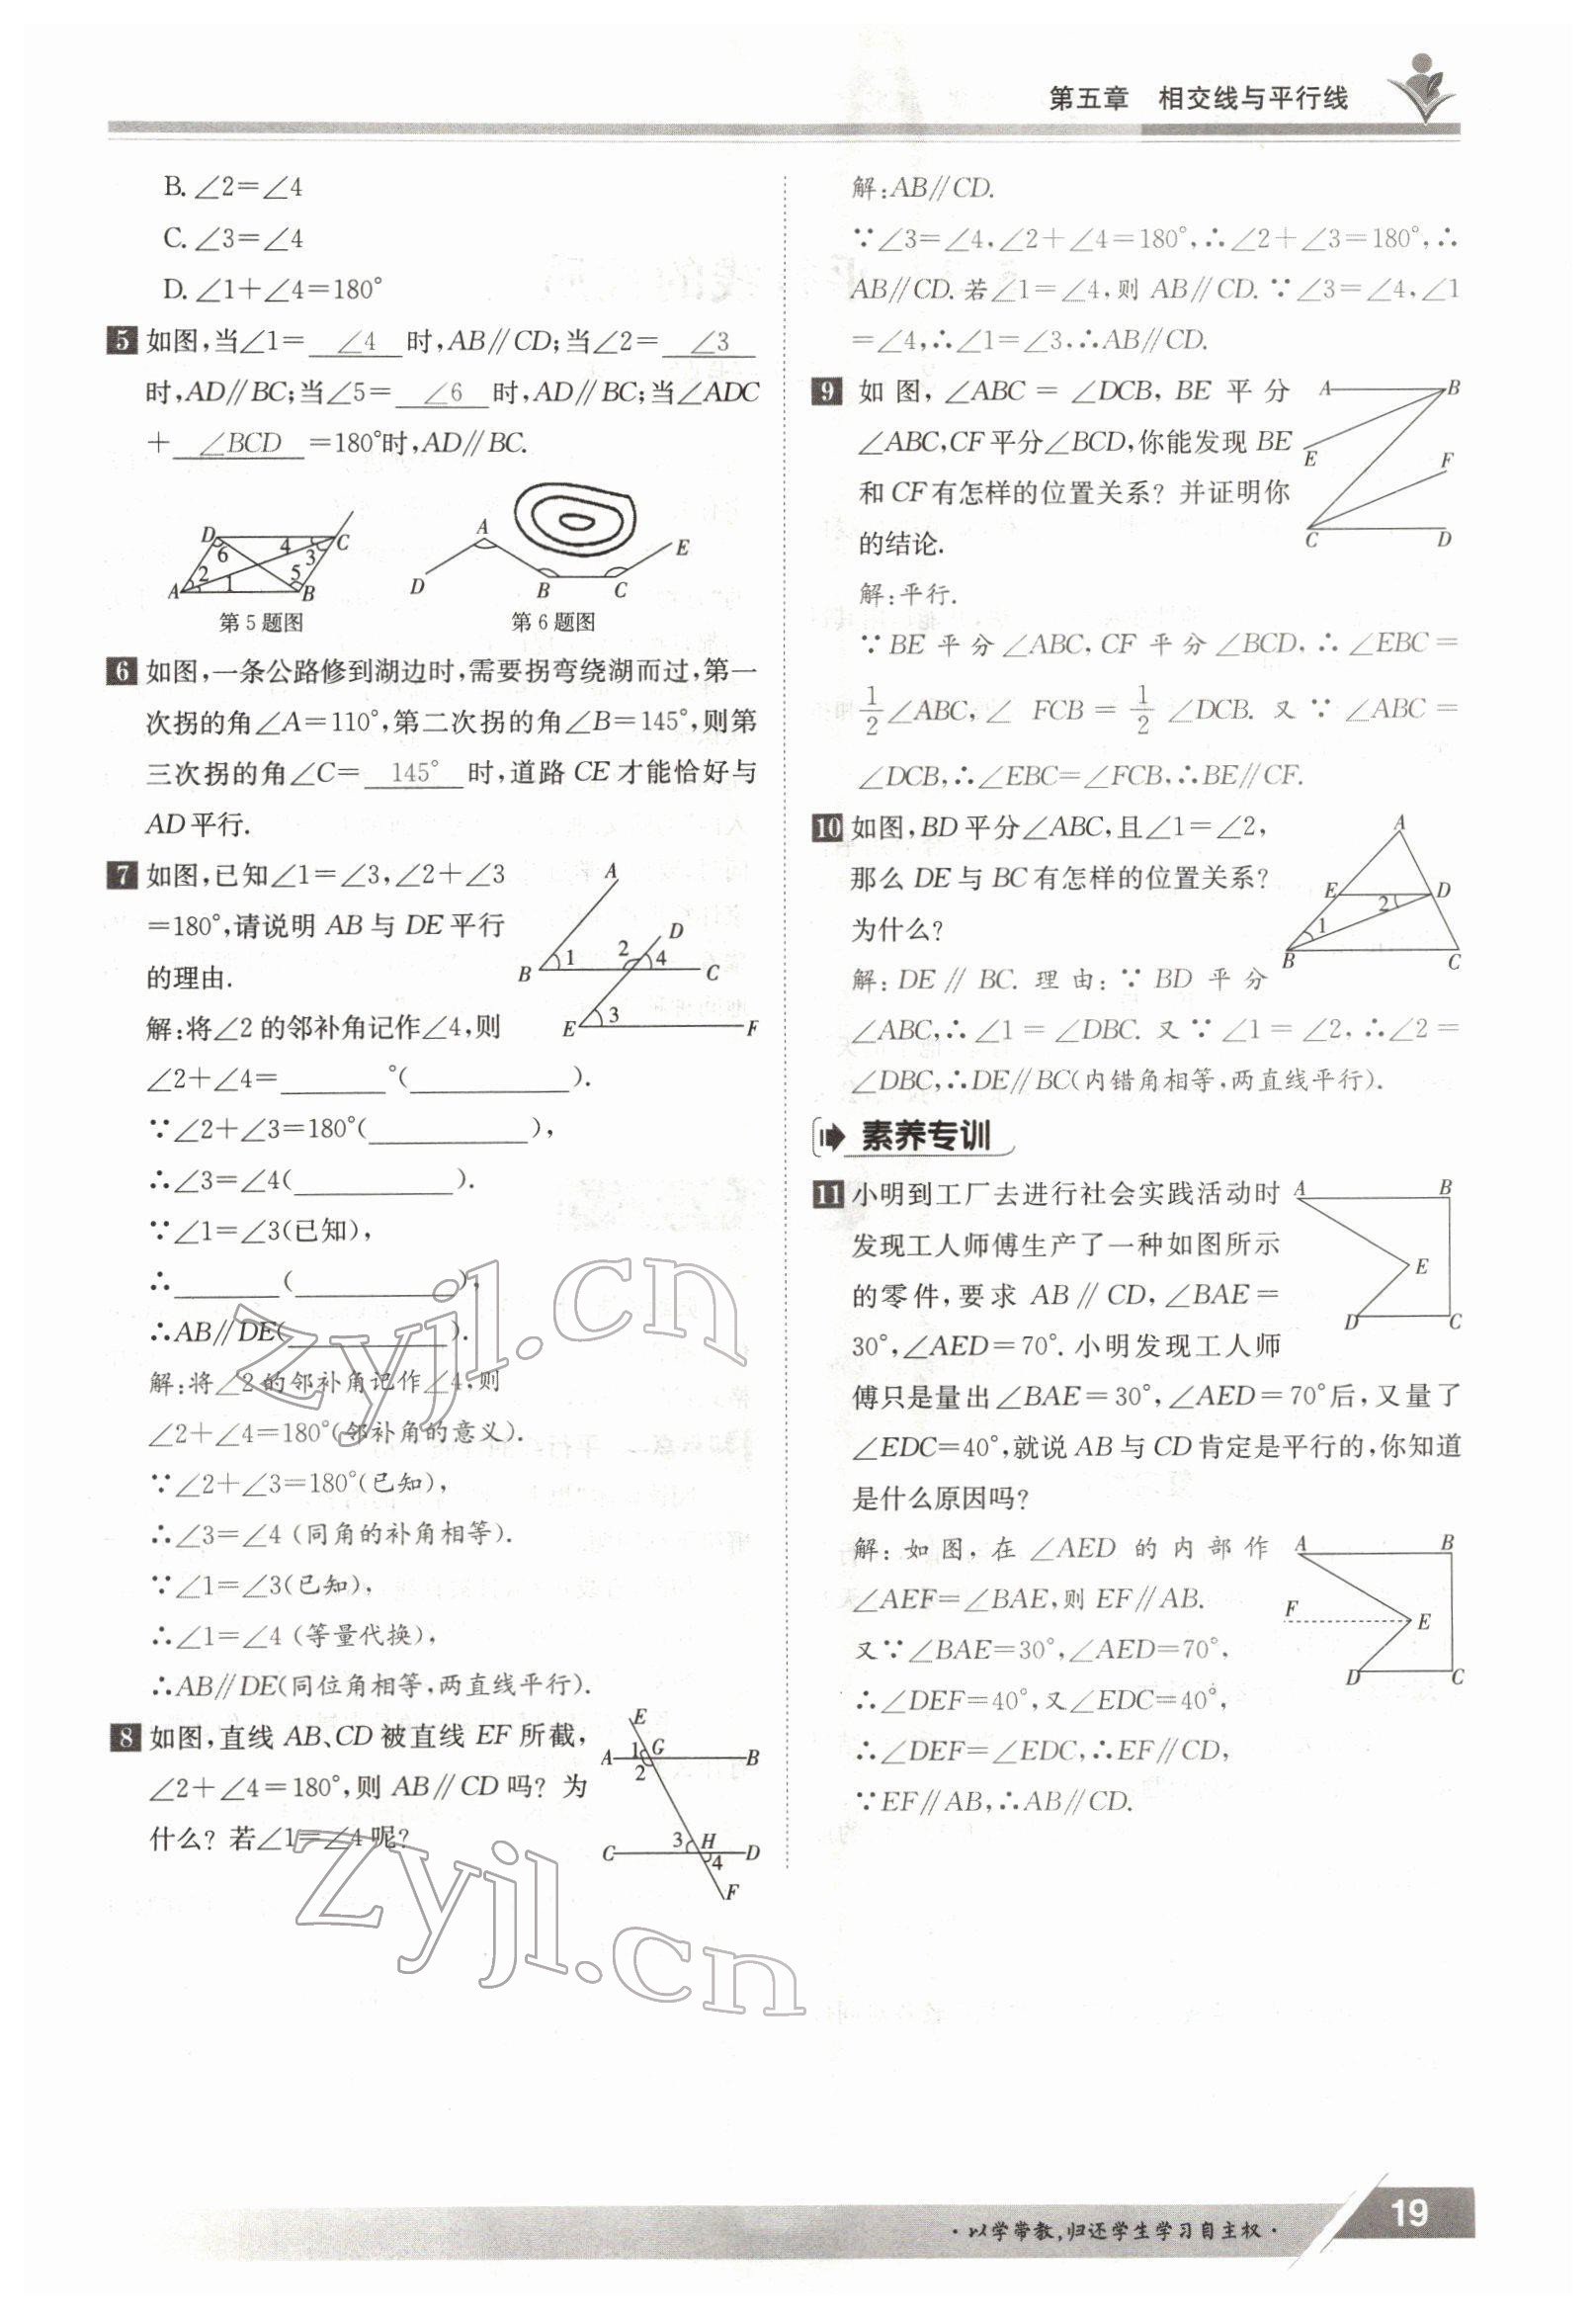 第五章 相交线与平行线
B. ∠2=∠4
C. ∠3=∠4
D. ∠1+∠4=180°
5 如图,当∠1= ∠4 时,AB∥CD;当∠2= ∠3
时,AD∥BC;当∠5= ∠6 时,AD∥BC;当∠ADC
+ ∠BCD =180°时,AD∥BC.
D 6 4 3 C A 2 1 5 B
第5题图
D A B C E
第6题图
6 如图,一条公路修到湖边时,需要拐弯绕湖而过,第一
次拐的角∠A=110°,第二次拐的角∠B=145°,则第
三次拐的角∠C= 145° 时,道路 CE 才能恰好与
AD平行.
7 如图,已知∠1=∠3,∠2+∠3
=180°,请说明 AB 与 DE 平行
的理由.
A D B 1 2 4 C E 3 F
解:将∠2的邻补角记作∠4,则
∠2+∠4=________°(____________).
∵∠2+∠3=180°(____________),
∴∠3=∠4(____________).
∵∠1=∠3(已知),
∴________(____________),
∴AB∥DE(____________).
解:将∠2的邻补角记作∠4,则
∠2+∠4=180°(邻补角的意义).
∵∠2+∠3=180°(已知),
∴∠3=∠4 (同角的补角相等).
∵∠1=∠3(已知),
∴∠1=∠4 (等量代换),
∴AB∥DE(同位角相等,两直线平行).
8 如图,直线 AB、CD 被直线 EF 所截,
∠2+∠4=180°,则 AB∥CD 吗? 为
什么? 若∠1=∠4呢?
E A 1 G B 2 C 3 H D 4 F
解:AB∥CD.
∵∠3=∠4,∠2+∠4=180°,∴∠2+∠3=180°,∴
AB∥CD. 若∠1=∠4,则 AB∥CD. ∵∠3=∠4,∠1
=∠4,∴∠1=∠3.∴AB∥CD.
9 如图,∠ABC=∠DCB,BE 平分
∠ABC,CF平分∠BCD,你能发现 BE
和 CF 有怎样的位置关系? 并证明你
的结论.
A B E F C D
解:平行.
∵BE 平分∠ABC,CF 平分∠BCD,∴∠EBC=
1/2∠ABC,∠ FCB=1/2∠DCB. 又∵∠ABC=
∠DCB,∴∠EBC=∠FCB,∴BE∥CF.
10 如图,BD平分∠ABC,且∠1=∠2,
那么 DE 与 BC 有怎样的位置关系?
为什么?
A E 2 D 1 B C
解:DE∥BC. 理由:∵BD 平分
∠ABC,∴∠1=∠DBC. 又∵∠1=∠2,∴∠2=
∠DBC,∴DE∥BC(内错角相等,两直线平行).
素养专训
11 小明到工厂去进行社会实践活动时
发现工人师傅生产了一种如图所示
的零件,要求 AB∥CD,∠BAE=
30°,∠AED=70°. 小明发现工人师
傅只是量出∠BAE=30°,∠AED=70°后,又量了
∠EDC=40°,就说 AB 与 CD 肯定是平行的,你知道
是什么原因吗?
A B E D C
解:如图,在∠AED 的内部作
∠AEF=∠BAE,则 EF∥AB.
又∵∠BAE=30°,∠AED=70°,
∴∠DEF=40°,又∠EDC=40°,
∴∠DEF=∠EDC,∴EF∥CD,
∵EF∥AB,∴AB∥CD.
A B F E D C
zyjl.cn
zyjl.cn
·以学带教,归还学生学习自主权·
19